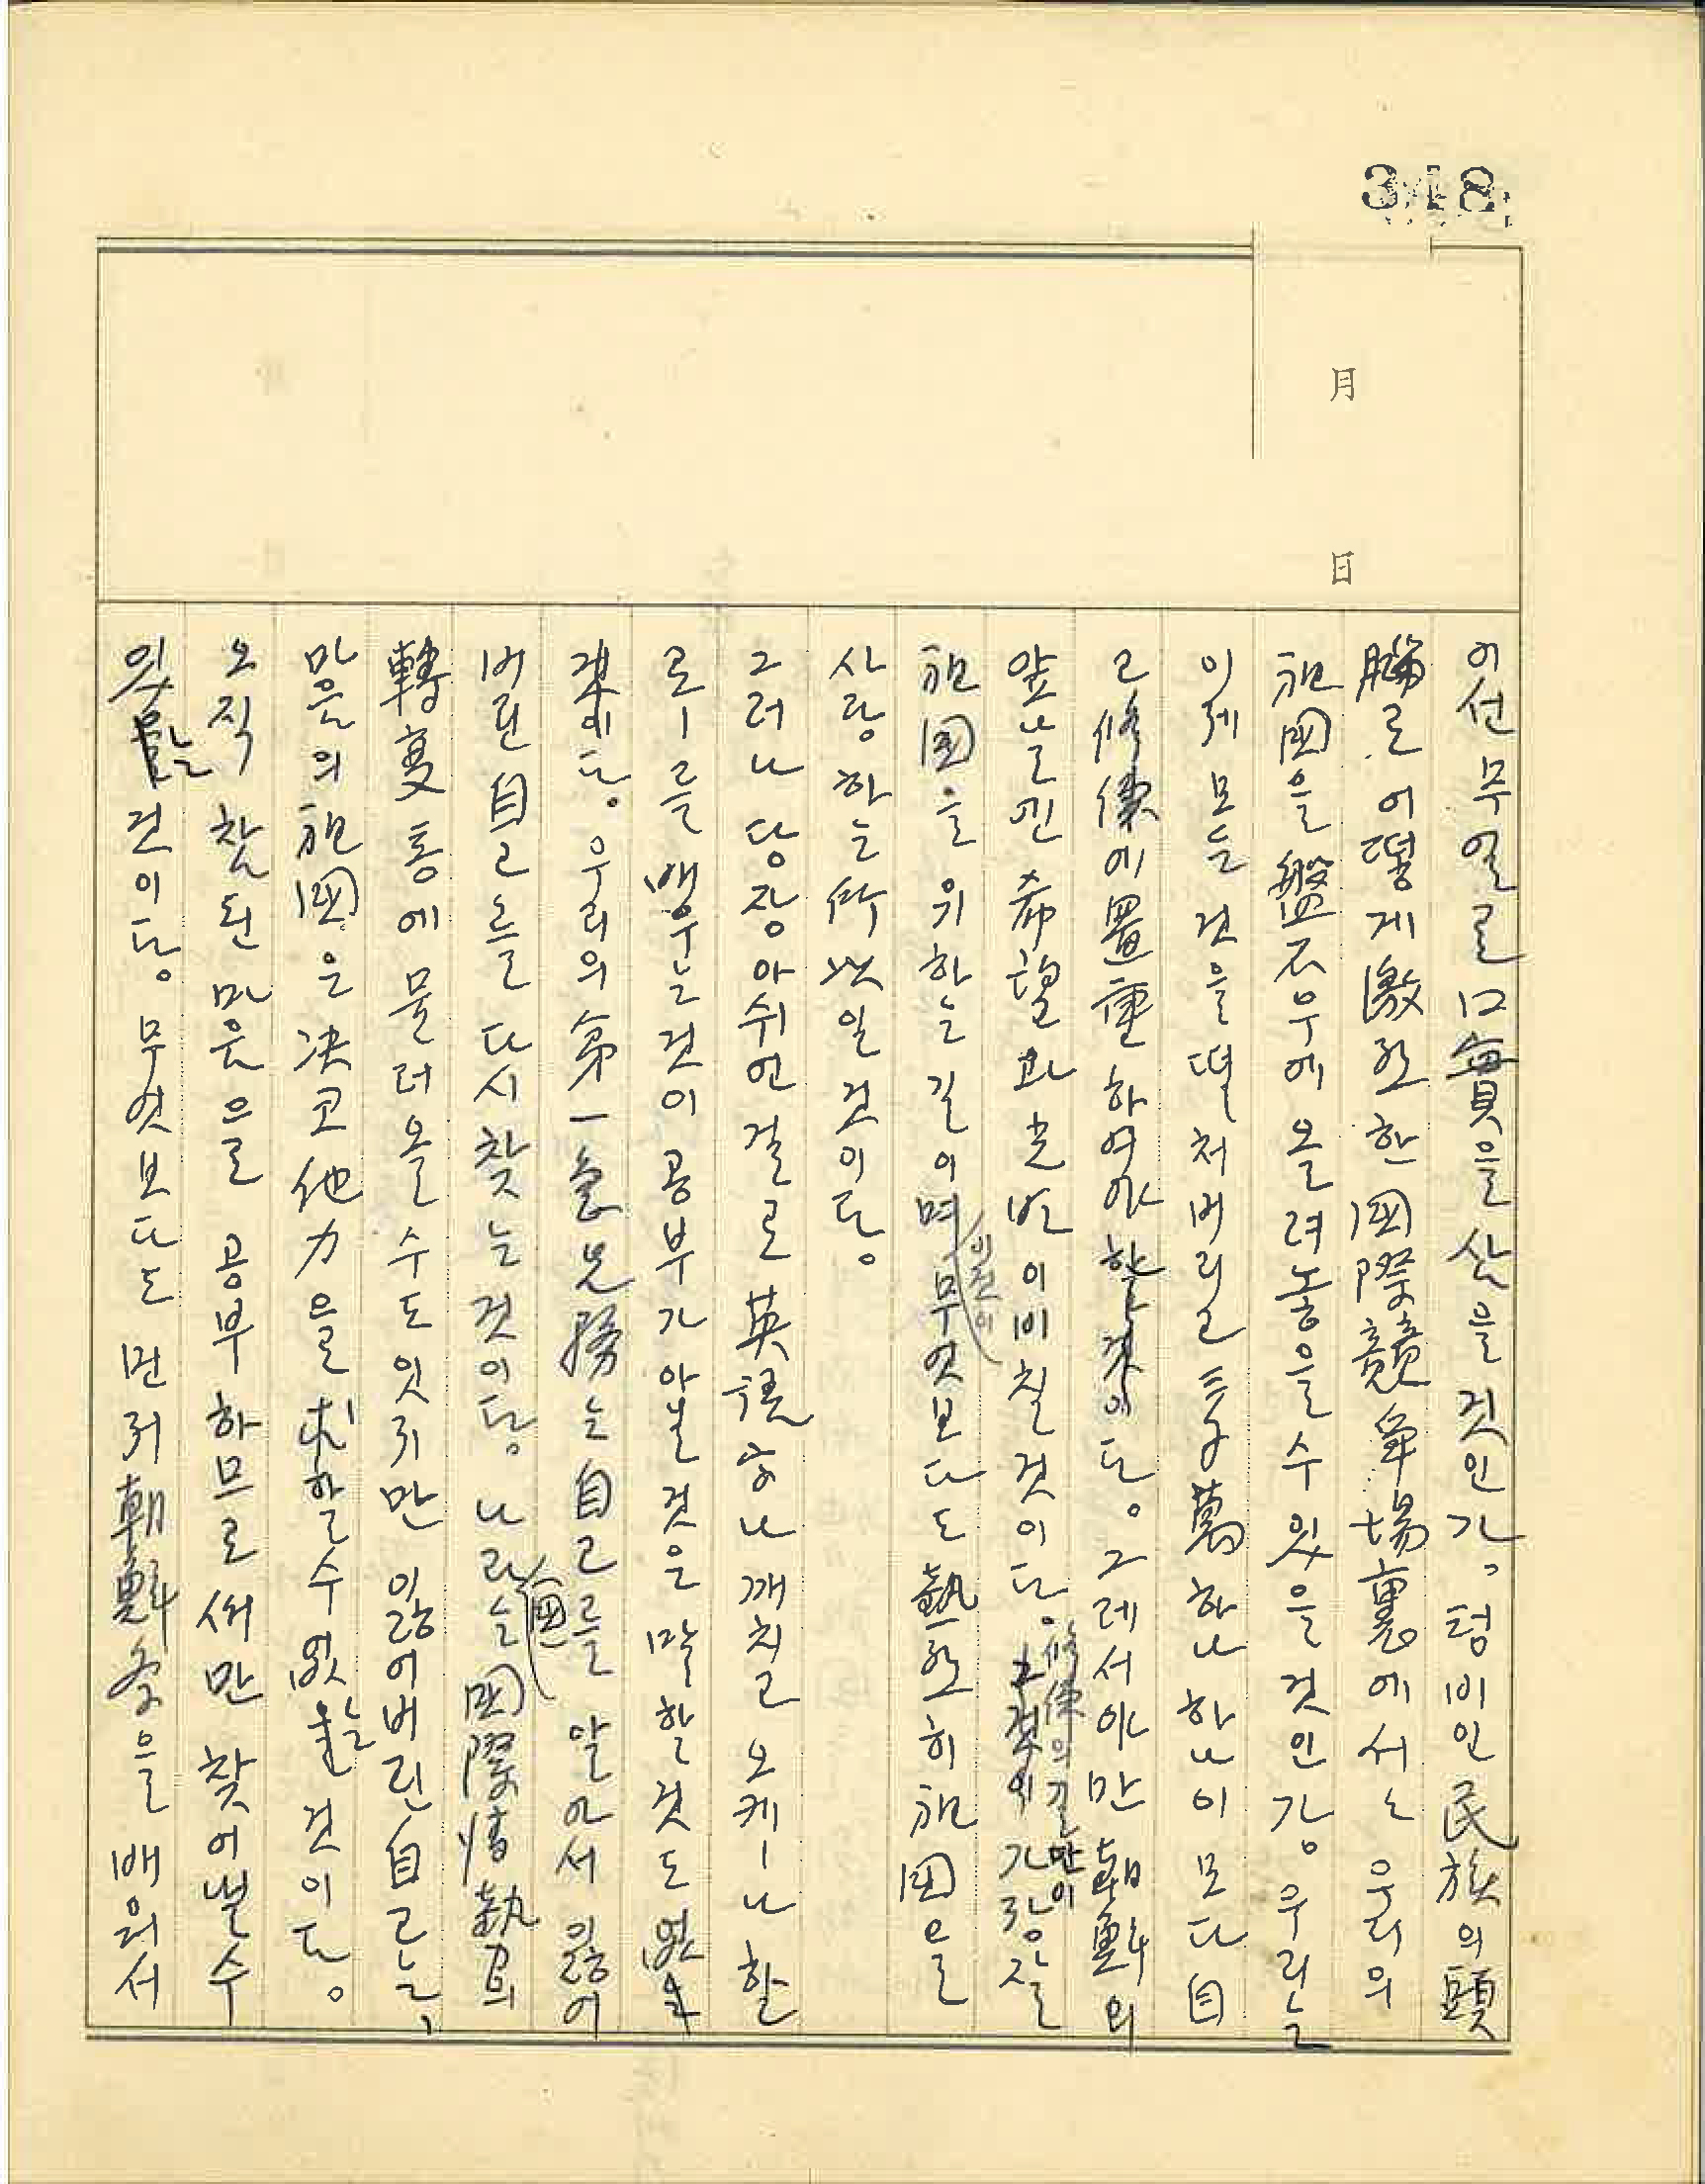 348
月
日
어선 무얼로 口實을 삼을 것인가. 텅 비인 民族의 頭
腦로 어떻게 激烈한 國際競爭場裏에서는 우리의
祖國을 盤石우에 올려놓을 수 있을 것인가. 우리는
이제 모든 것을 떨처버리고 三千萬 하나 하나이 모다 自
己修養에 置重하여야 할 것이다. 그레서야만 朝鮮의
앞날엔 希望과 光明이 비칠 것이다. 修養의 길만이 가장 잘
祖國을 위하는 길이며 무엇보다도 熱烈히 祖國을
사랑하는 所以일 것이다.
그러나 당장 아쉬언 걸로 英語字나 깨치고 오케ー나 할
로ー를 배우는 것이 공부가 아닐 것은 말할 것도 없을
것이다. 우리의 第一急先務는 自己를 알아서 잃어
버린 自己를 다시 찾는 것이다. 나라는 國際情勢의
轉變통에 물러올 수도 잇지만 잃어버린 自己는,
마음의 祖國은 決코 他力을 求할 수 없는 것이다.
오직 참된 마음으로 공부하므로써만 찾어낼 수
있는 것이다. 무엇보다도 먼저 朝鮮魂을 배워서